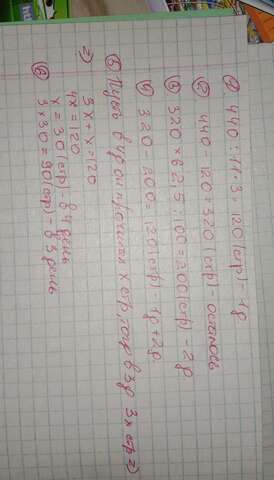 ① 440 : 11 × 3 = 120 (стр) - 1д
② 440 - 120 = 320 (стр) осталось
③ 320 × 62,5 : 100 = 200 (стр) - 2д
④ 320 - 200 = 120 (стр) - 1д + 2д
⑤ Пусть в 4 день прочитал x стр, тогда в 3д 3x стр =)
=)
3x + x = 120
4x = 120
x = 30 (стр) - в 4 день
⑥ 3 × 30 = 90 (стр) - в 3 день